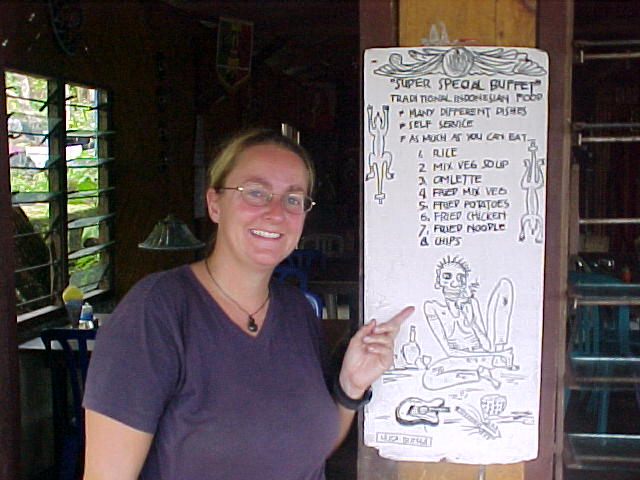 "SUPER SPECIAL BUFFET"
TRADITIONAL INDONESIAN FOOD
* MANY DIFFERENT DISHES
* SELF SERVICE
* AS MUCH AS YOU CAN EAT
1. RICE
2. MIX VEG SOUP
3. OMLETTE
4. FRIED MIX VEG
5. FRIED POTATOES
6. FRIED CHICKEN
7. FRIED NOODLE
8. CHIPS